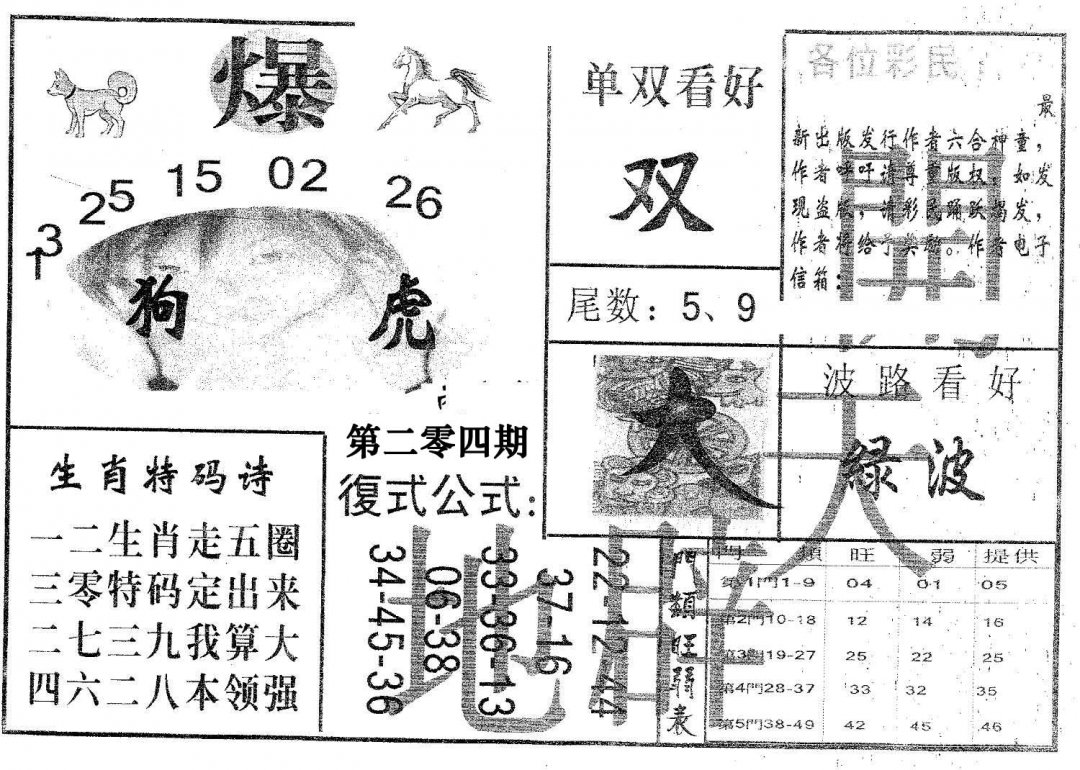 爆
25 15 02 26
13
狗 虎
单双看好
双
尾数：5、9
各位彩民：
最
新出版发行作者六合神童，
作者呼吁请尊重版权，如发
现盗版，请彩民踊跃揭发，
作者将给予奖励。作者电子
信箱：
大
波路看好
綠波
開
天
地
生肖特码诗
一二生肖走五圈
三零特码定出来
二七三九我算大
四六二八本领强
第二零四期
復式公式：
34-45-36
06-38
33-36-13
37-16
22-12-44
門類旺弱表
門類 旺 弱 提供
第1門1-9 04 01 05
第2門10-18 12 14 16
第3門19-27 25 22 25
第4門28-37 33 32 35
第5門38-49 42 45 46